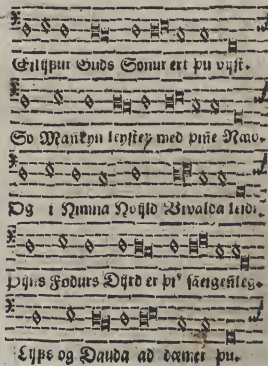 Eilijßur Guds Sonur ert þu vijst.
So Mañkyn leyster med pijñe Naw.
Og i Himna Hvijld Bivalda leidi.
þijns Fodurs Dijrd er þi⁹ saeigeñleg.
Lijfs og Dauda ad dæmer þu.